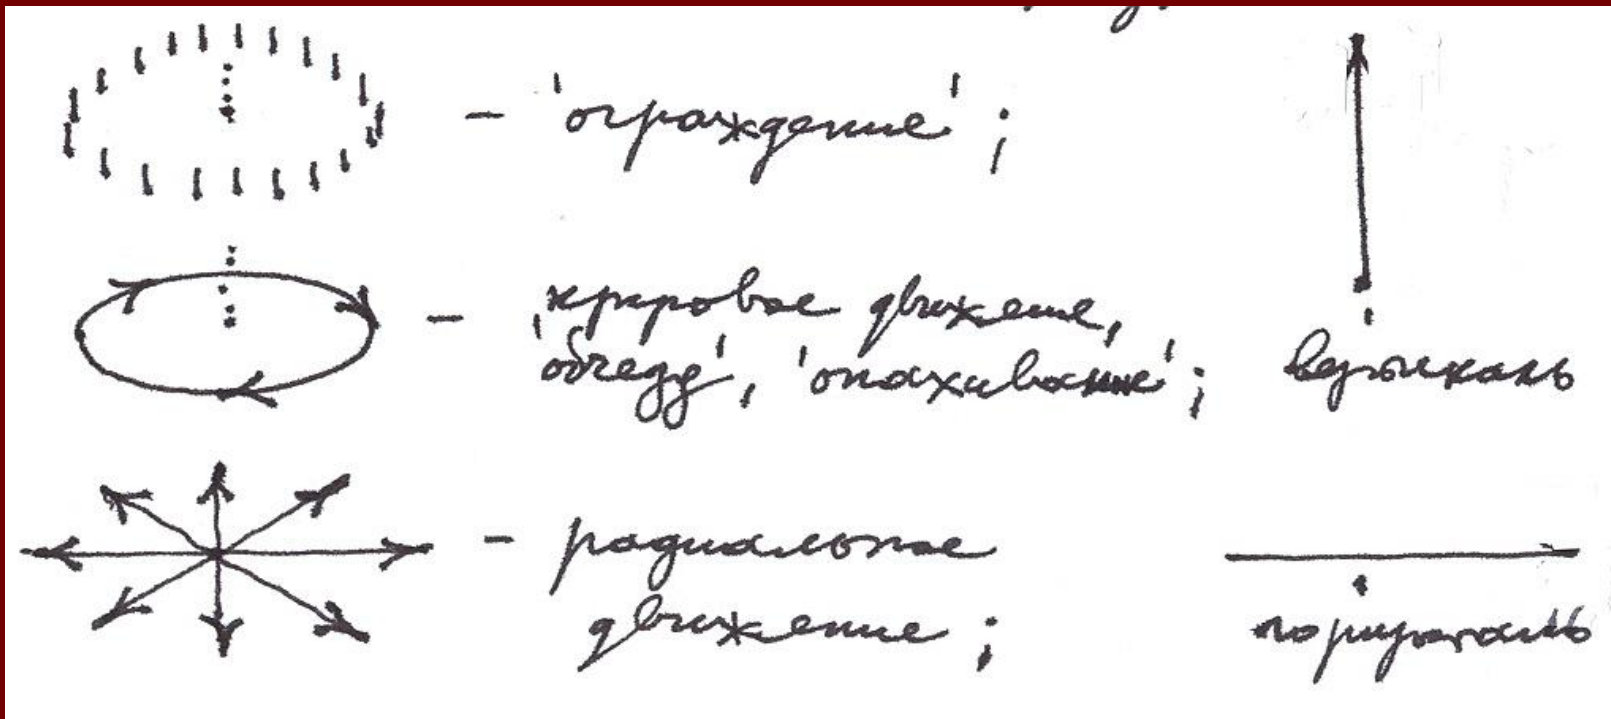 – 'ограждение';
– круговое движение,
'объезд', 'опахивание';
вертикаль
– радиальное
движение;
горизонталь